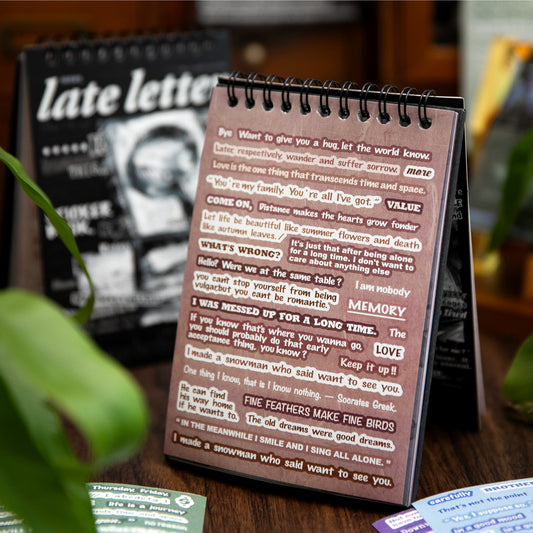 late letter
Bye Want to give you a hug, let the world know.
Later respectively, wander and suffer sorrow. more
Love is the one thing that transcends time and space.
"You're my family. You're all I've got." VALUE
COME ON, Distance makes the hearts grow fonder
Let life be beautiful like summer flowers and death
like autumn leaves. /
WHAT'S WRONG? It's just that after being alone
for a long time. I don't want to
care about anything else
Hello? Were we at the same table?
I am nobody
you cant stop yourself from being
vulgacbut you cant be romantic.
MEMORY
I WAS MESSED UP FOR A LONG TIME. The
If you know that's where you wanna go,
you should probably do that early
acceptance thing, you know?
LOVE
Keep it up!!
I made a snowman who said want to see you.
One thing I know, that is I know nothing. — Socrates Greek.
He can find
his way home
if he wants to.
FINE FEATHERS MAKE FINE BIRDS
The old dreams were good dreams.
"IN THE MEANWHILE I SMILE AND I SING ALL ALONE,"
I made a snowman who said want to see you.
Thursday, Friday,
life is a journey
no reason
carefully BROTHER
That's not the point
We'll suppose so
in a good mood